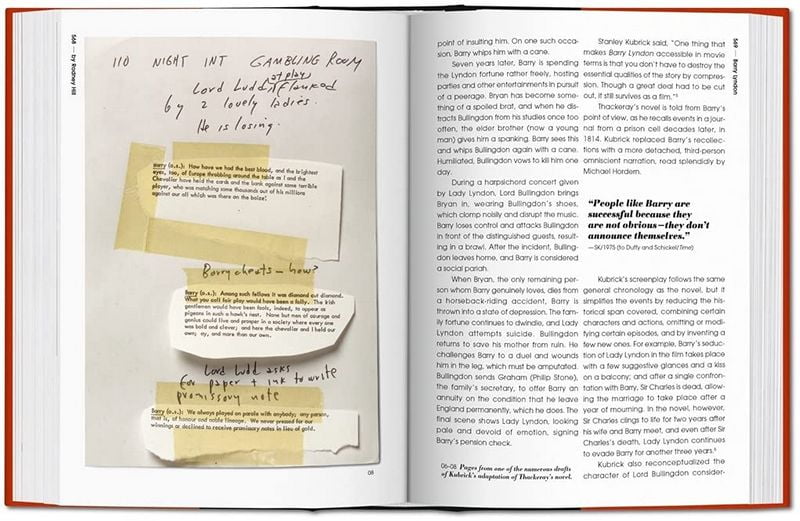 568 — by Rodney Hill
110 NIGHT INT GAMBLING ROOM
Lord Ludd at play flanked
by 2 lovely ladies.
He is losing.
Barry (o.s.): How have we had the best blood, and the brightest
eyes, too, of Europe throbbing around the table as I and the
Chevalier have held the cards and the bank against some terrible
player, who was matching some thousands out of his millions
against our all which was there on the baize!
Barry cheats — how?
Barry (o.s.): Among such fellows it was diamond cut diamond.
What you call fair play would have been a folly. The Irish
gentlemen would have been fools, indeed, to appear as
pigeons in such a hawk's nest. None but men of courage and
genius could live and prosper in a society where every one
was bold and clever; and here the chevalier and I held our
own; ay, and more than our own.
Lord Ludd asks
for paper + ink to write
promissory note
Barry (o.s.): We always played on parole with anybody; any person,
that is, of honour and noble lineage. We never pressed for our
winnings or declined to receive promissory notes in lieu of gold.
08
point of insulting him. On one such occa-
sion, Barry whips him with a cane.
Seven years later, Barry is spending
the Lyndon fortune rather freely, hosting
parties and other entertainments in pursuit
of a peerage. Bryan has become some-
thing of a spoiled brat, and when he dis-
tracts Bullingdon from his studies once too
often, the elder brother (now a young
man) gives him a spanking. Barry sees this
and whips Bullingdon again with a cane.
Humiliated, Bullingdon vows to kill him one
day.
During a harpsichord concert given
by Lady Lyndon, Lord Bullingdon brings
Bryan in, wearing Bullingdon's shoes,
which clomp noisily and disrupt the music.
Barry loses control and attacks Bullingdon
in front of the distinguished guests, result-
ing in a brawl. After the incident, Bulling-
don leaves home, and Barry is considered
a social pariah.
When Bryan, the only remaining per-
son whom Barry genuinely loves, dies from
a horseback-riding accident, Barry is
thrown into a state of depression. The fam-
ily fortune continues to dwindle, and Lady
Lyndon attempts suicide. Bullingdon
returns to save his mother from ruin. He
challenges Barry to a duel and wounds
him in the leg, which must be amputated.
Bullingdon sends Graham (Philip Stone),
the family's secretary, to offer Barry an
annuity on the condition that he leave
England permanently, which he does. The
final scene shows Lady Lyndon, looking
pale and devoid of emotion, signing
Barry's pension check.
06–08 Pages from one of the numerous drafts
of Kubrick's adaptation of Thackeray's novel.
Stanley Kubrick said, "One thing that
makes Barry Lyndon accessible in movie
terms is that you don't have to destroy the
essential qualities of the story by compres-
sion. Though a great deal had to be cut
out, it still survives as a film."
Thackeray's novel is told from Barry's
point of view, as he recalls events in a jour-
nal from a prison cell decades later, in
1814. Kubrick replaced Barry's recollec-
tions with a more detached, third-person
omniscient narration, read splendidly by
Michael Hordern.
"People like Barry are
successful because they
are not obvious—they don't
announce themselves."
—SK/1975 (to Duffy and Schickel/Time)
Kubrick's screenplay follows the same
general chronology as the novel, but it
simplifies the events by reducing the his-
torical span covered, combining certain
characters and actions, omitting or modi-
fying certain episodes, and by inventing a
few new ones. For example, Barry's seduc-
tion of Lady Lyndon in the film takes place
with a few suggestive glances and a kiss
on a balcony; and after a single confron-
tation with Barry, Sir Charles is dead, allow-
ing the marriage to take place after a
year of mourning. In the novel, however,
Sir Charles clings to life for two years after
his wife and Barry meet, and even after Sir
Charles's death, Lady Lyndon continues
to evade Barry for another three years.
Kubrick also reconceptualized the
character of Lord Bullingdon consider-
569 — Barry Lyndon